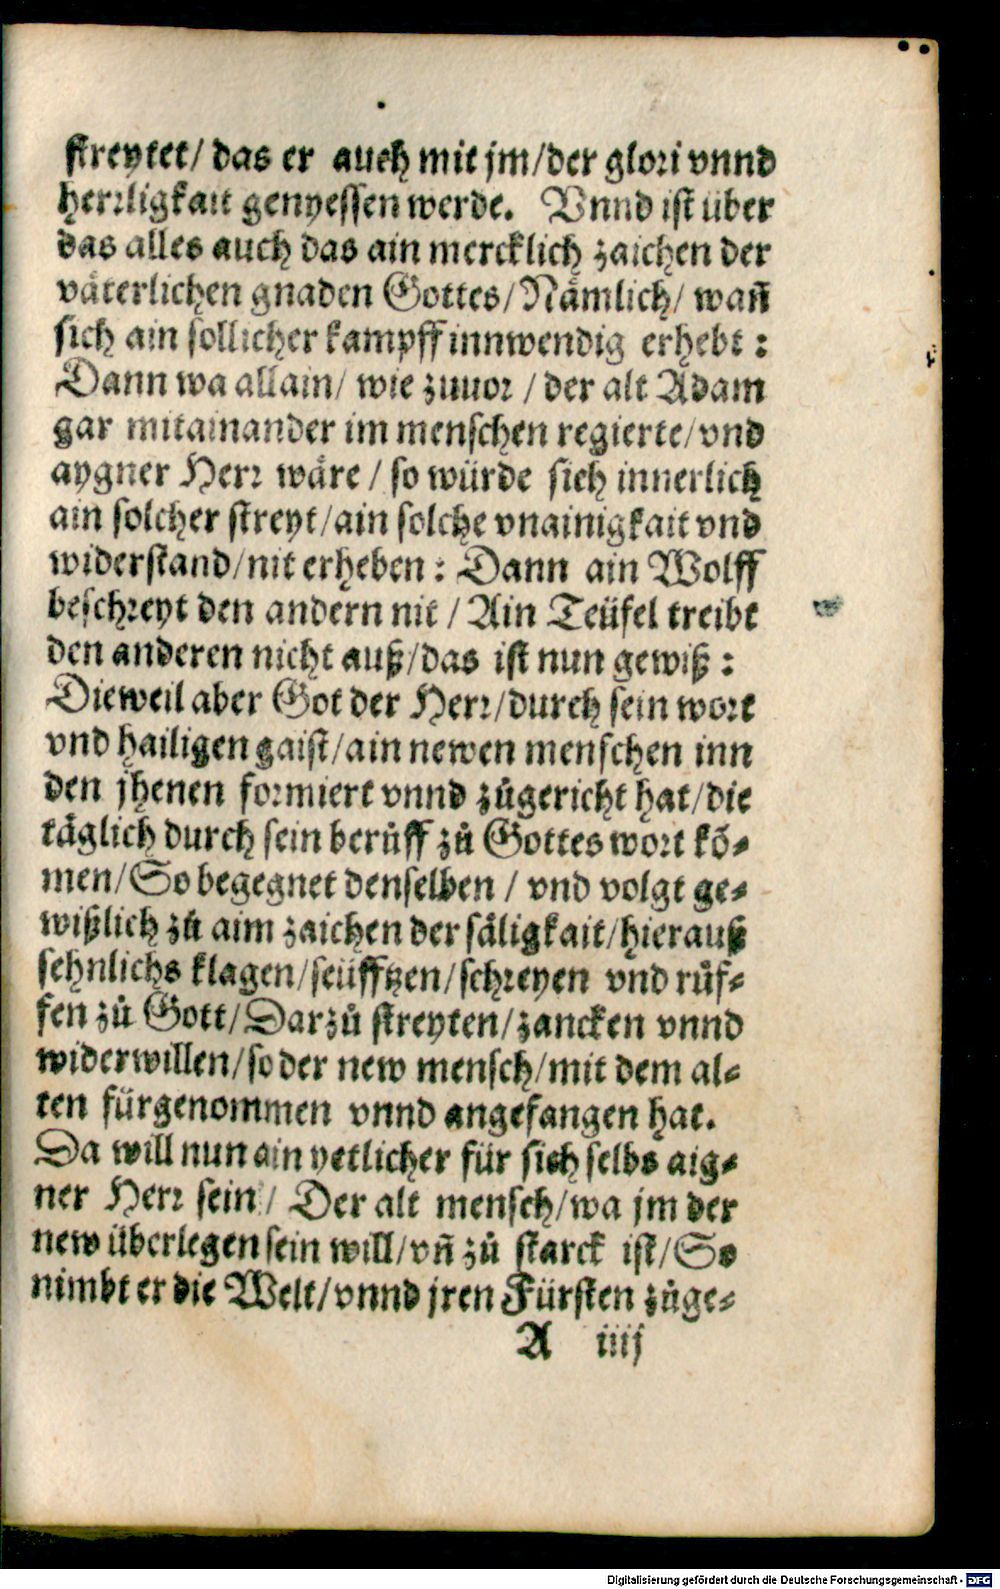 streytet/ das er auch mit jm/der glori vnnd
herrligkait genyessen werde. Vnnd ist über
das alles auch das ain mercklich zaichen der
väterlichen gnaden Gottes/Nämlich/ wañ
sich ain sollicher kampff innwendig erhebt :
Dann wa allain/ wie zuuor / der alt Adam
gar mitainander im menschen regierte/vnd
aygner Herr wäre / so würde sich innerlich
ain solcher streyt/ain solche vnainigkait vnd
widerstand/nit erheben : Dann ain Wolff
beschreyt den andern nit / Ain Teüfel treibt
den anderen nicht auß/das ist nun gewiß :
Dieweil aber Got der Herr/durch sein wort
vnd hailigen gaist/ain newen menschen inn
den jhenen formiert vnnd zůgericht hat/die
täglich durch sein berůff zů Gottes wort kõ-
men/So begegnet denselben / vnd volgt ge-
wißlich zů aim zaichen der säligkait/hierauß
sehnlichs klagen/seüfftzen/schreyen vnd růf-
fen zů Gott/Darzů streyten/zancken vnnd
widerwillen/so der new mensch/mit dem al-
ten fürgenommen vnnd angefangen hat.
Da will nun ain yetlicher für sich selbs aig-
ner Herr sein/ Der alt mensch/wa jm der
new überlegen sein will/vñ zů starck ist/So
nimbt er die Welt/vnnd jren Fürsten zůge-
A iiij
Digitalisierung gefördert durch die Deutsche Forschungsgemeinschaft - DFG